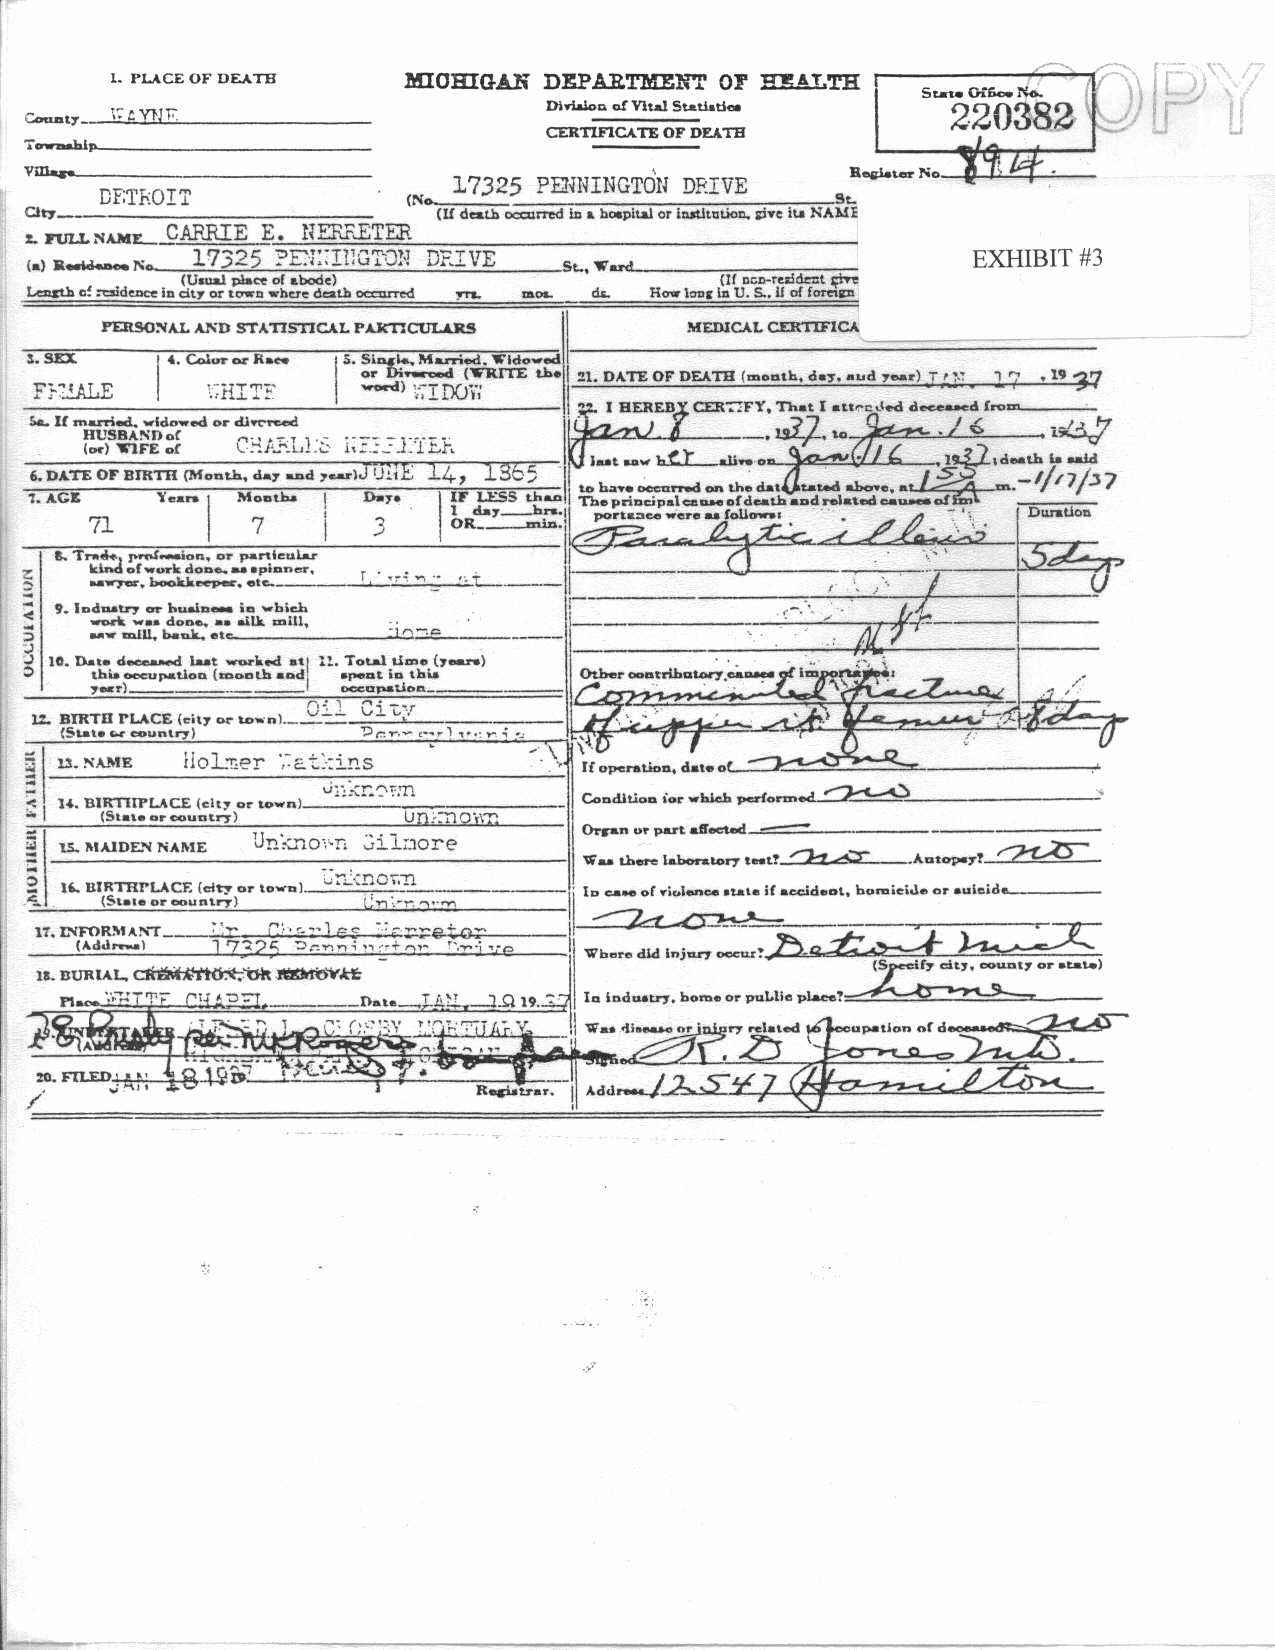 COPY
1. PLACE OF DEATH
MICHIGAN DEPARTMENT OF HEALTH
Division of Vital Statistics
CERTIFICATE OF DEATH
State Office No.
220382
Register No. 894.
County WAYNE
Township
Village
City DETROIT
(No. 17325 PENNINGTON DRIVE St.
(If death occurred in a hospital or institution, give its NAME
2. FULL NAME CARRIE E. HERRETER
(a) Residence No. 17325 PENNINGTON DRIVE St., Ward
(Usual place of abode) (If non-resident give
Length of residence in city or town where death occurred yrs. mos. ds. How long in U. S., if of foreign
EXHIBIT #3
PERSONAL AND STATISTICAL PARTICULARS
3. SEX
FEMALE
4. Color or Race
WHITE
5. Single, Married, Widowed
or Divorced (WRITE the
word) WIDOW
5a. If married, widowed or divorced
HUSBAND of
(or) WIFE of CHARLES HERRETER
6. DATE OF BIRTH (Month, day and year) JUNE 14, 1865
7. AGE Years Months Days IF LESS than
1 day hrs.
OR min.
71 7 3
OCCUPATION
8. Trade, profession, or particular
kind of work done, as spinner,
sawyer, bookkeeper, etc. Living at
9. Industry or business in which
work was done, as silk mill,
saw mill, bank, etc. Home
10. Date deceased last worked at
this occupation (month and
year)
11. Total time (years)
spent in this
occupation
12. BIRTH PLACE (city or town) Oil City
(State or country) Pennsylvania
FATHER
13. NAME Holmer Watkins
14. BIRTHPLACE (city or town) Unknown
(State or country) Unknown
MOTHER
15. MAIDEN NAME Unknown Gilmore
16. BIRTHPLACE (city or town) Unknown
(State or country) Unknown
17. INFORMANT Mr. Charles Harretor
(Address) 17325 Pennington Drive
18. BURIAL, CREMATION, OR REMOVAL
Place WHITE CHAPEL Date JAN. 19 1937
19. UNDERTAKER
(Address)
20. FILED JAN 18 1937
Registrar.
MEDICAL CERTIFICA
21. DATE OF DEATH (month, day, and year) JAN 17, 1937
22. I HEREBY CERTIFY, That I attended deceased from
Jan. 8, 1937, to Jan. 16, 1937
I last saw her alive on Jan 16, 1937; death is said
to have occurred on the date stated above, at 1 55 A m. - 1/17/37
The principal cause of death and related causes of im
portance were as follows: Duration
Paralytic illeus 5 days
Other contributory causes of importance:
Commenuted fracture
of upper rt femur 8 days
If operation, date of none
Condition for which performed no
Organ or part affected
Was there laboratory test? no Autopsy? no
In case of violence state if accident, homicide or suicide
none
Where did injury occur? Detroit Mich
(Specify city, county or state)
In industry, home or public place? home
Was disease or injury related to occupation of deceased? no
Signed R. D Jones M.D.
Address 12547 Hamilton